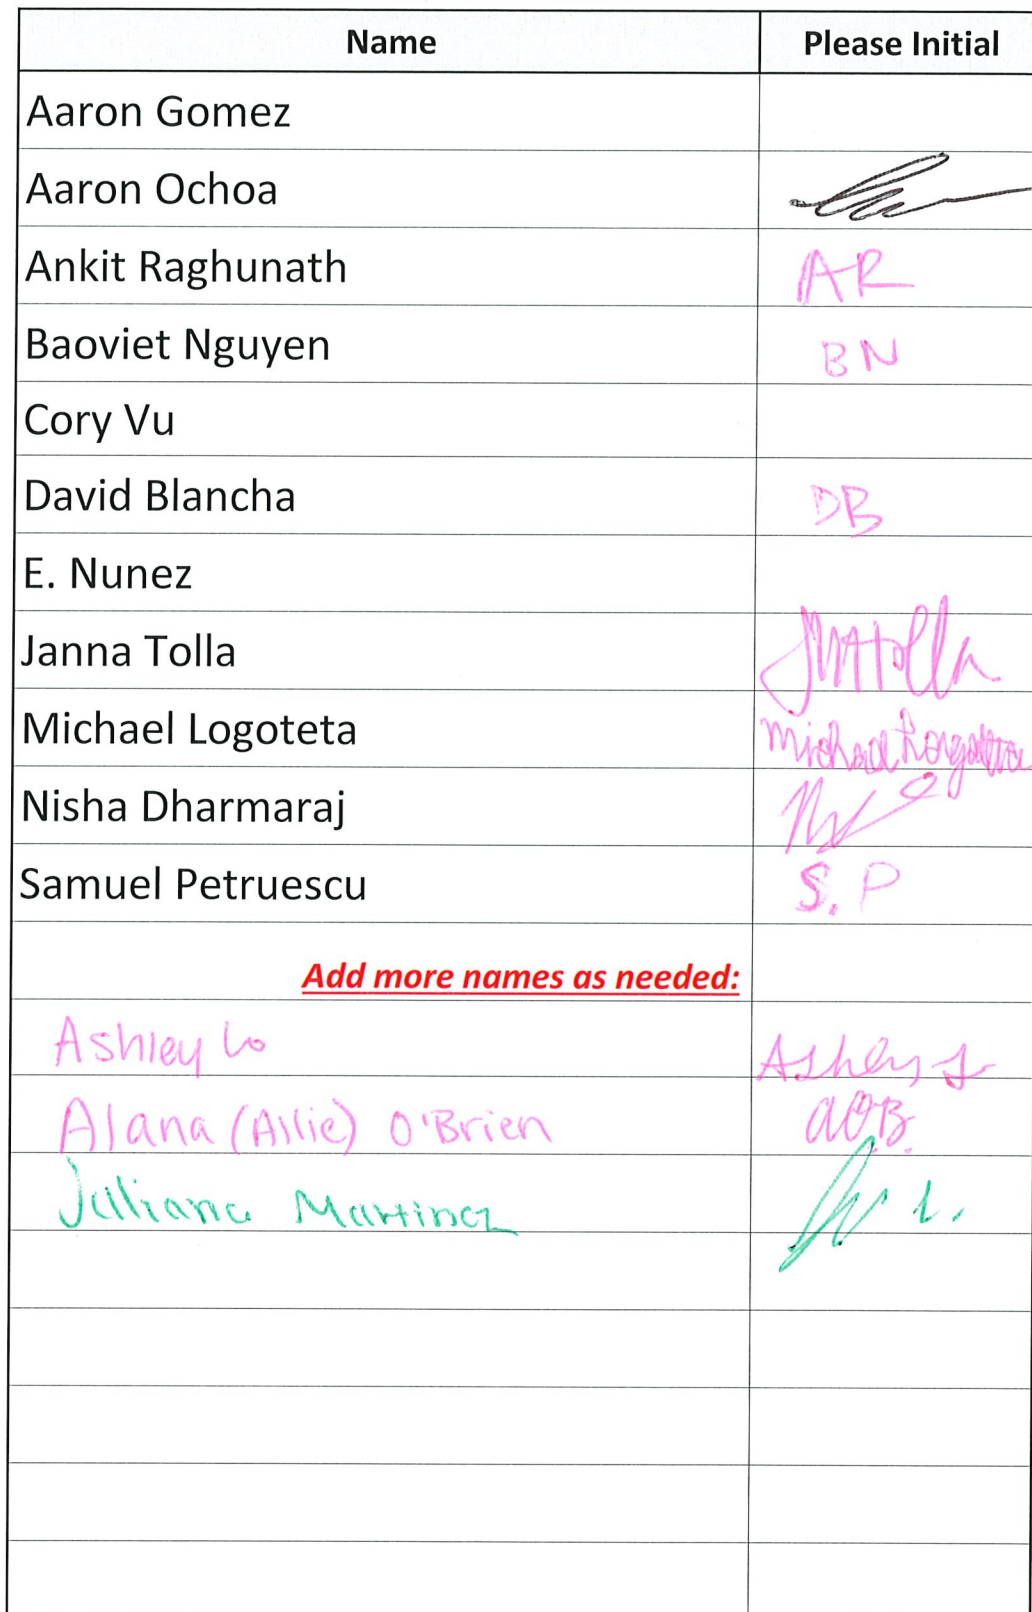 Name Please Initial
Aaron Gomez
Aaron Ochoa
Ankit Raghunath AR
Baoviet Nguyen BN
Cory Vu
David Blancha DB
E. Nunez
Janna Tolla JMTolla
Michael Logoteta Michael
Nisha Dharmaraj
Samuel Petruescu S.P
Add more names as needed:
Ashley Lo Ashley L
Alana (Allie) O'Brien AOB.
Juliana Martinez